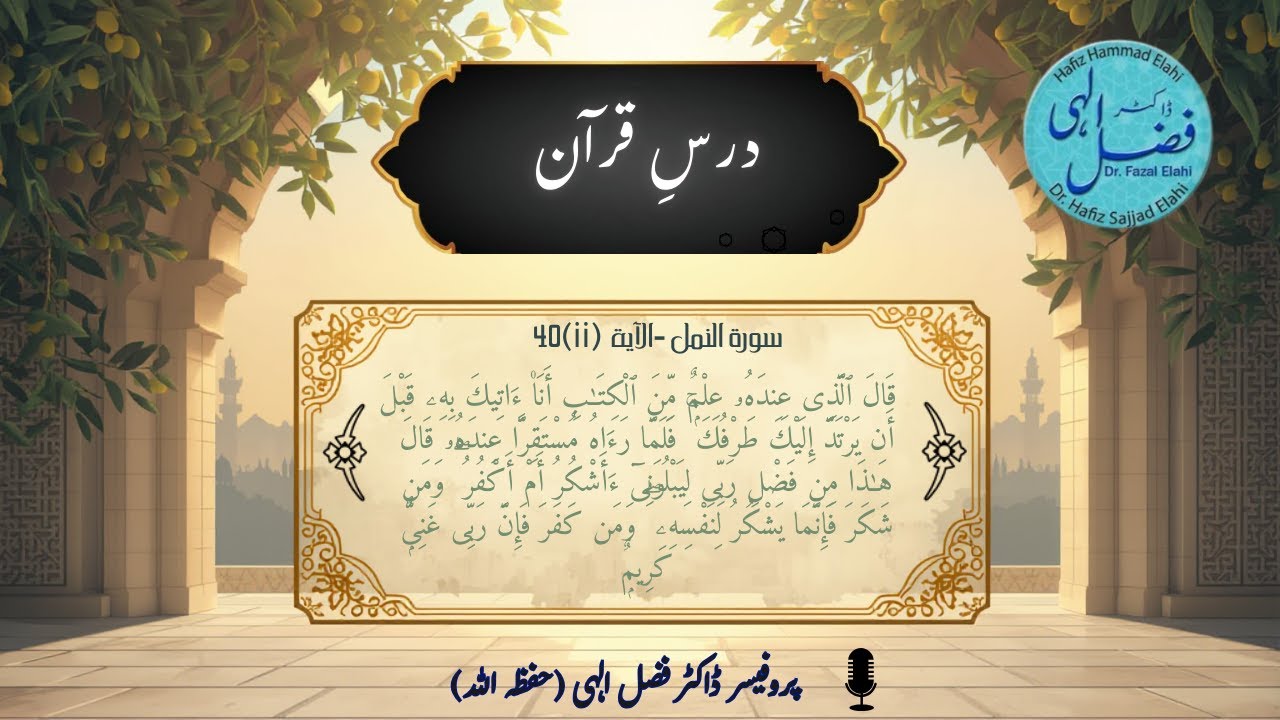 درسِ قرآن
Hafiz Hammad Elahi
ڈاکٹر
فضل الہی
Dr. Fazal Elahi
Dr. Hafiz Sajjad Elahi
سورة النمل -الآية 40(ii)
قَالَ ٱلَّذِى عِندَهُۥ عِلْمٌۭ مِّنَ ٱلْكِتَـٰبِ أَنَا۠ ءَاتِيكَ بِهِۦ قَبْلَ
أَن يَرْتَدَّ إِلَيْكَ طَرْفُكَ ۚ فَلَمَّا رَءَاهُ مُسْتَقِرًّا عِندَهُۥ قَالَ
هَـٰذَا مِن فَضْلِ رَبِّى لِيَبْلُوَنِىٓ ءَأَشْكُرُ أَمْ أَكْفُرُ ۖ وَمَن
شَكَرَ فَإِنَّمَا يَشْكُرُ لِنَفْسِهِۦ ۖ وَمَن كَفَرَ فَإِنَّ رَبِّى غَنِىٌّۭ
كَرِيمٌۭ
پروفیسر ڈاکٹر فضل الہی (حفظہ اللہ)